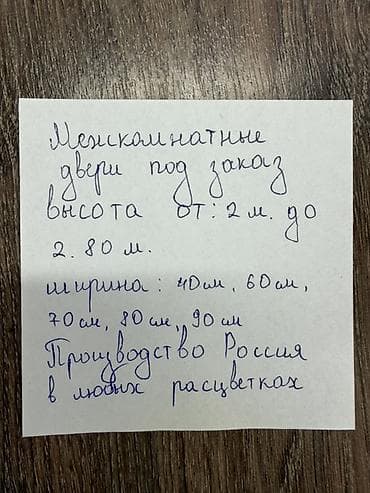 Межкомнатные
двери под заказ
высота от: 2 м. до
2.80 м.
ширина: 40 см, 60 см,
70 см, 80 см, 90 см
Производство Россия
в любых расцветках